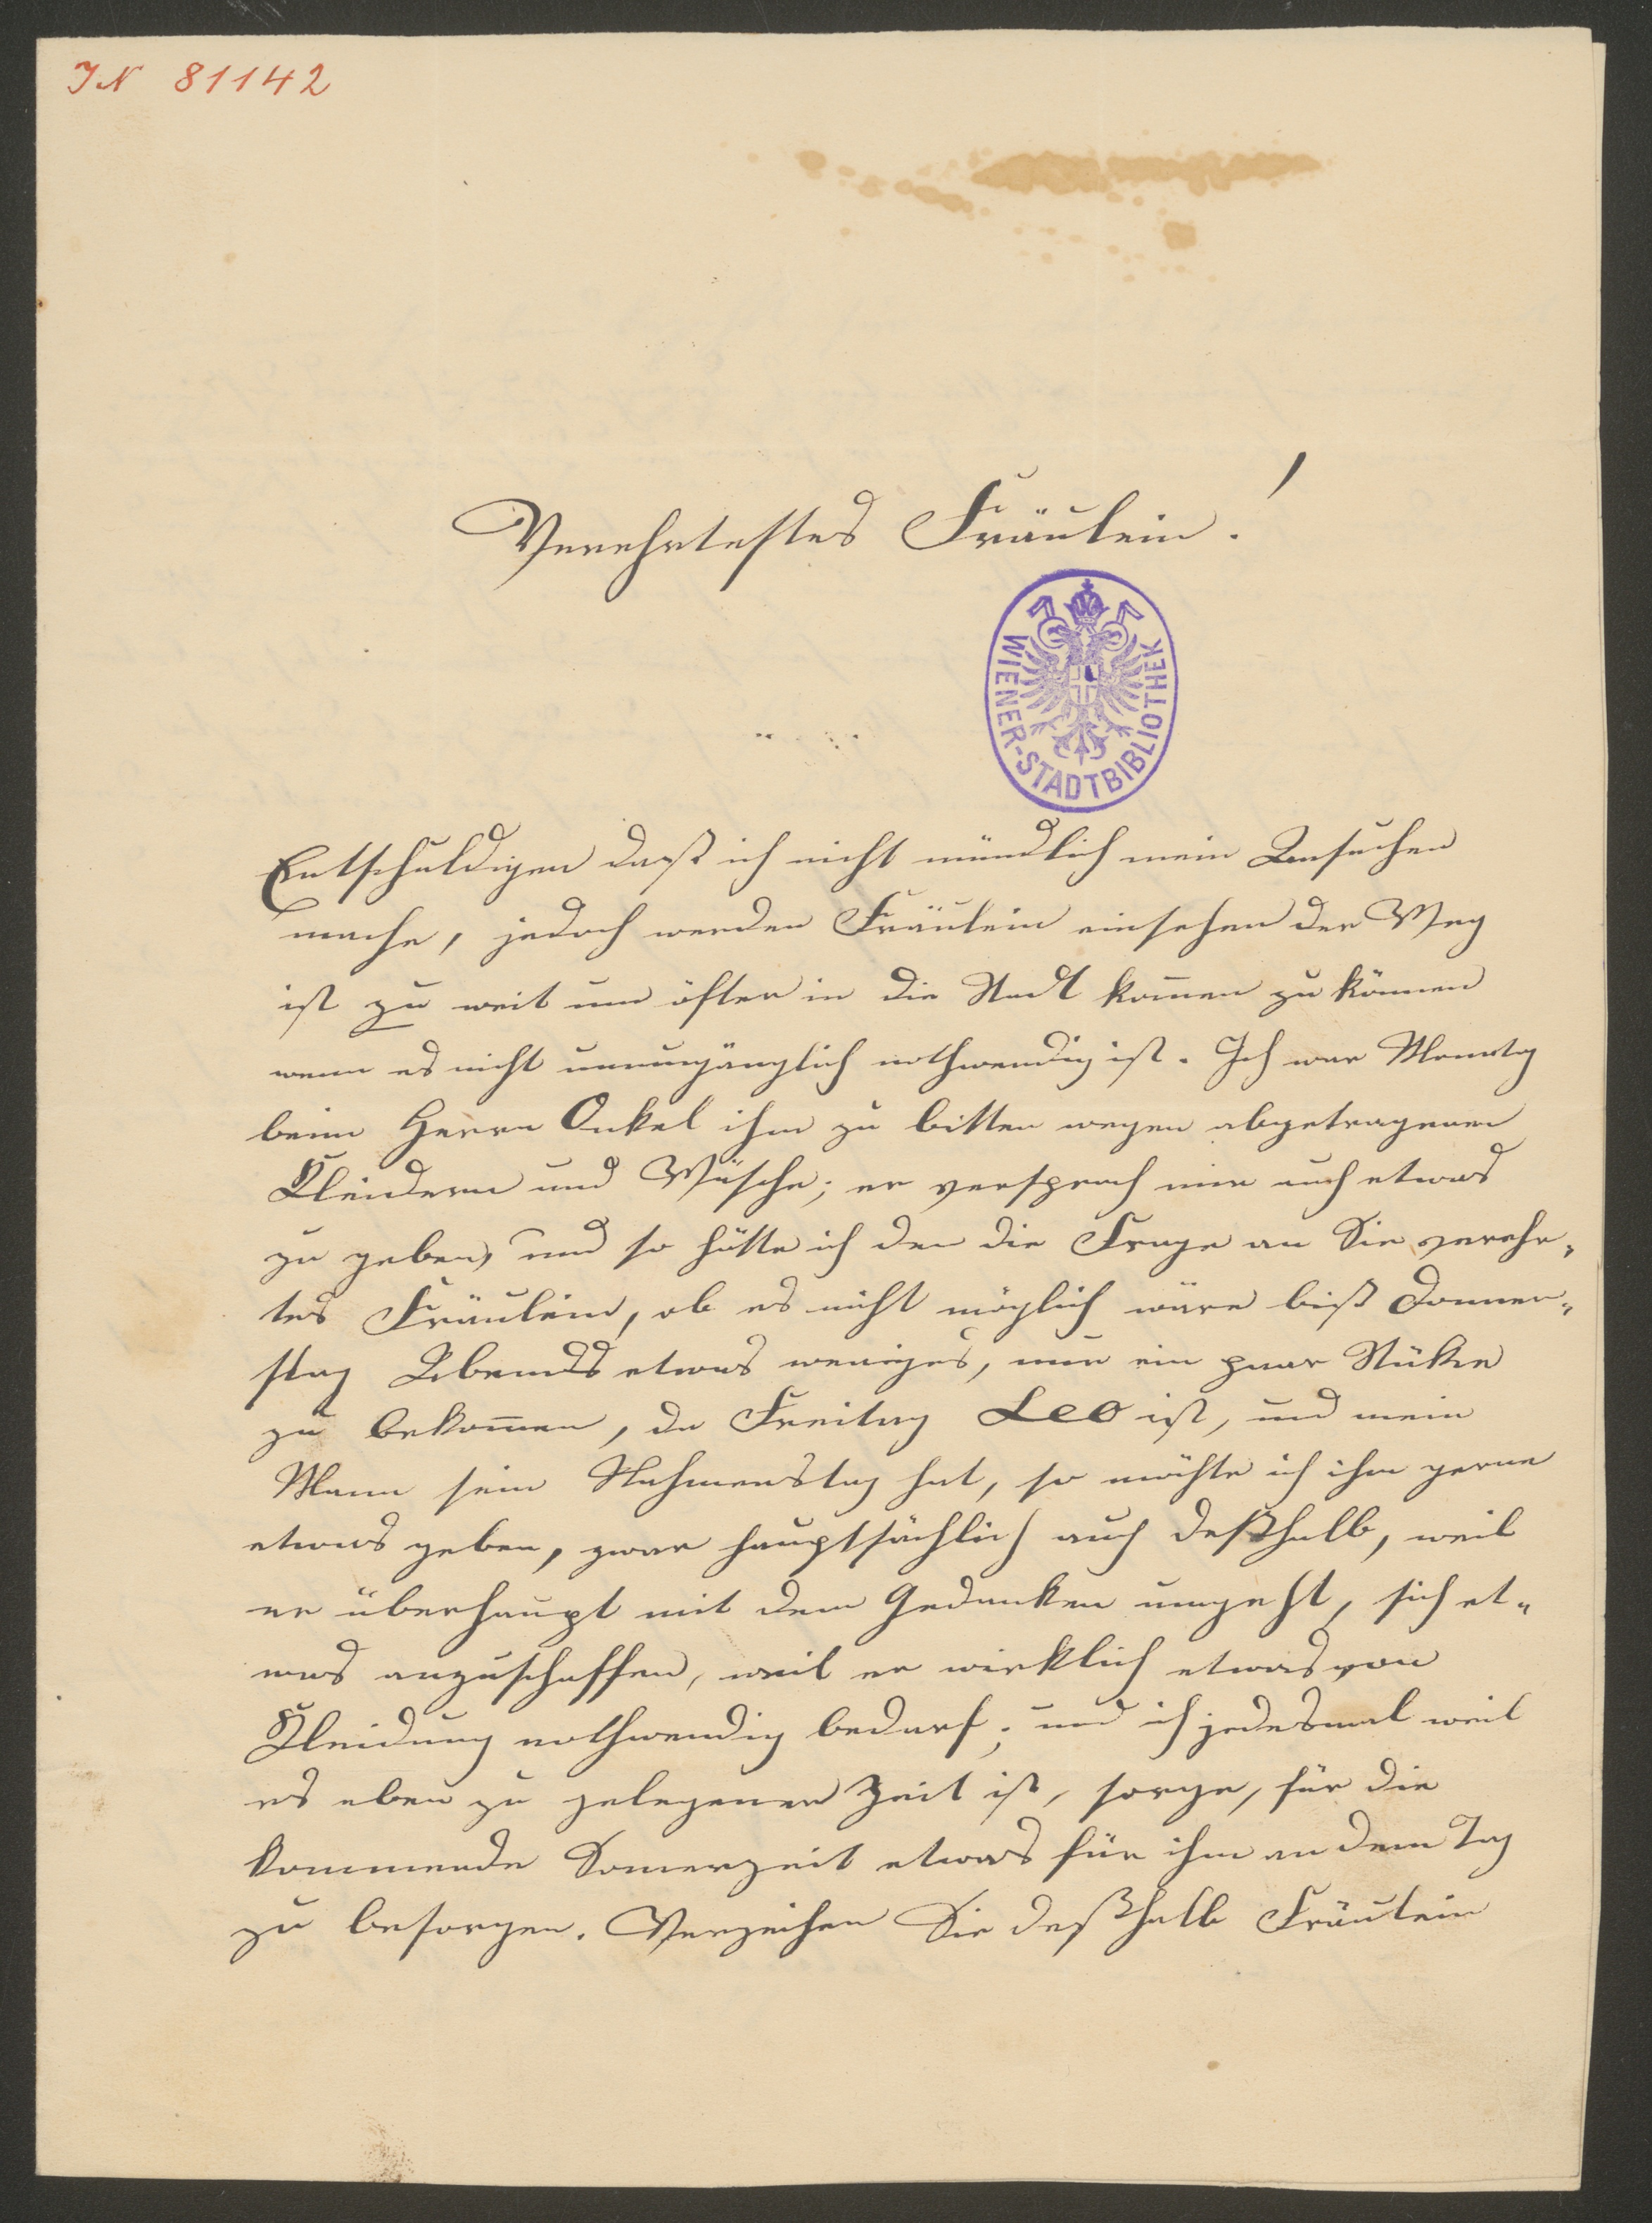 IN 81142
Verehrtestes Fräulein!
WIENER-STADTBIBLIOTHEK
Entschuldigen daß ich nicht mündlich mein Ansuchen
mache, jedoch werden Fräulein einsehen der Weg
ist zu weit um öfter in die Stadt kom̅en zu können
wenn es nicht unumgänglich nothwendig ist. Ich war Montag
beim Herrn Onkel ihm zu bitten wegen abgetragenen
Kleidern und Wäsche; er versprach mir auch etwas
zu geben, und so hätte ich den die Frage an Sie verehr„
tes Fräulein, ob es nicht möglich wäre biß Donner„
stag Abends etwas weniges, nur ein paar Stüke
zu bekom̅en, da Freitag Leo ist, und mein
Mann sein Nahmenstag hat, so möchte ich ihm gerne
etwas geben, zwar hauptsächlich auch deßhalb, weil
er überhaupt mit dem Gedanken umgeht, sich et„
was anzuschaffen, weil er wirklich etwas von
Kleidung nothwendig bedarf; und ich jedesmal weil
es eben zu gelegener Zeit ist, sorge, für die
kommende Som̅erzeit etwas für ihm an dem Tag
zu besorgen. Verzeihen Sie deßhalb Fräulein